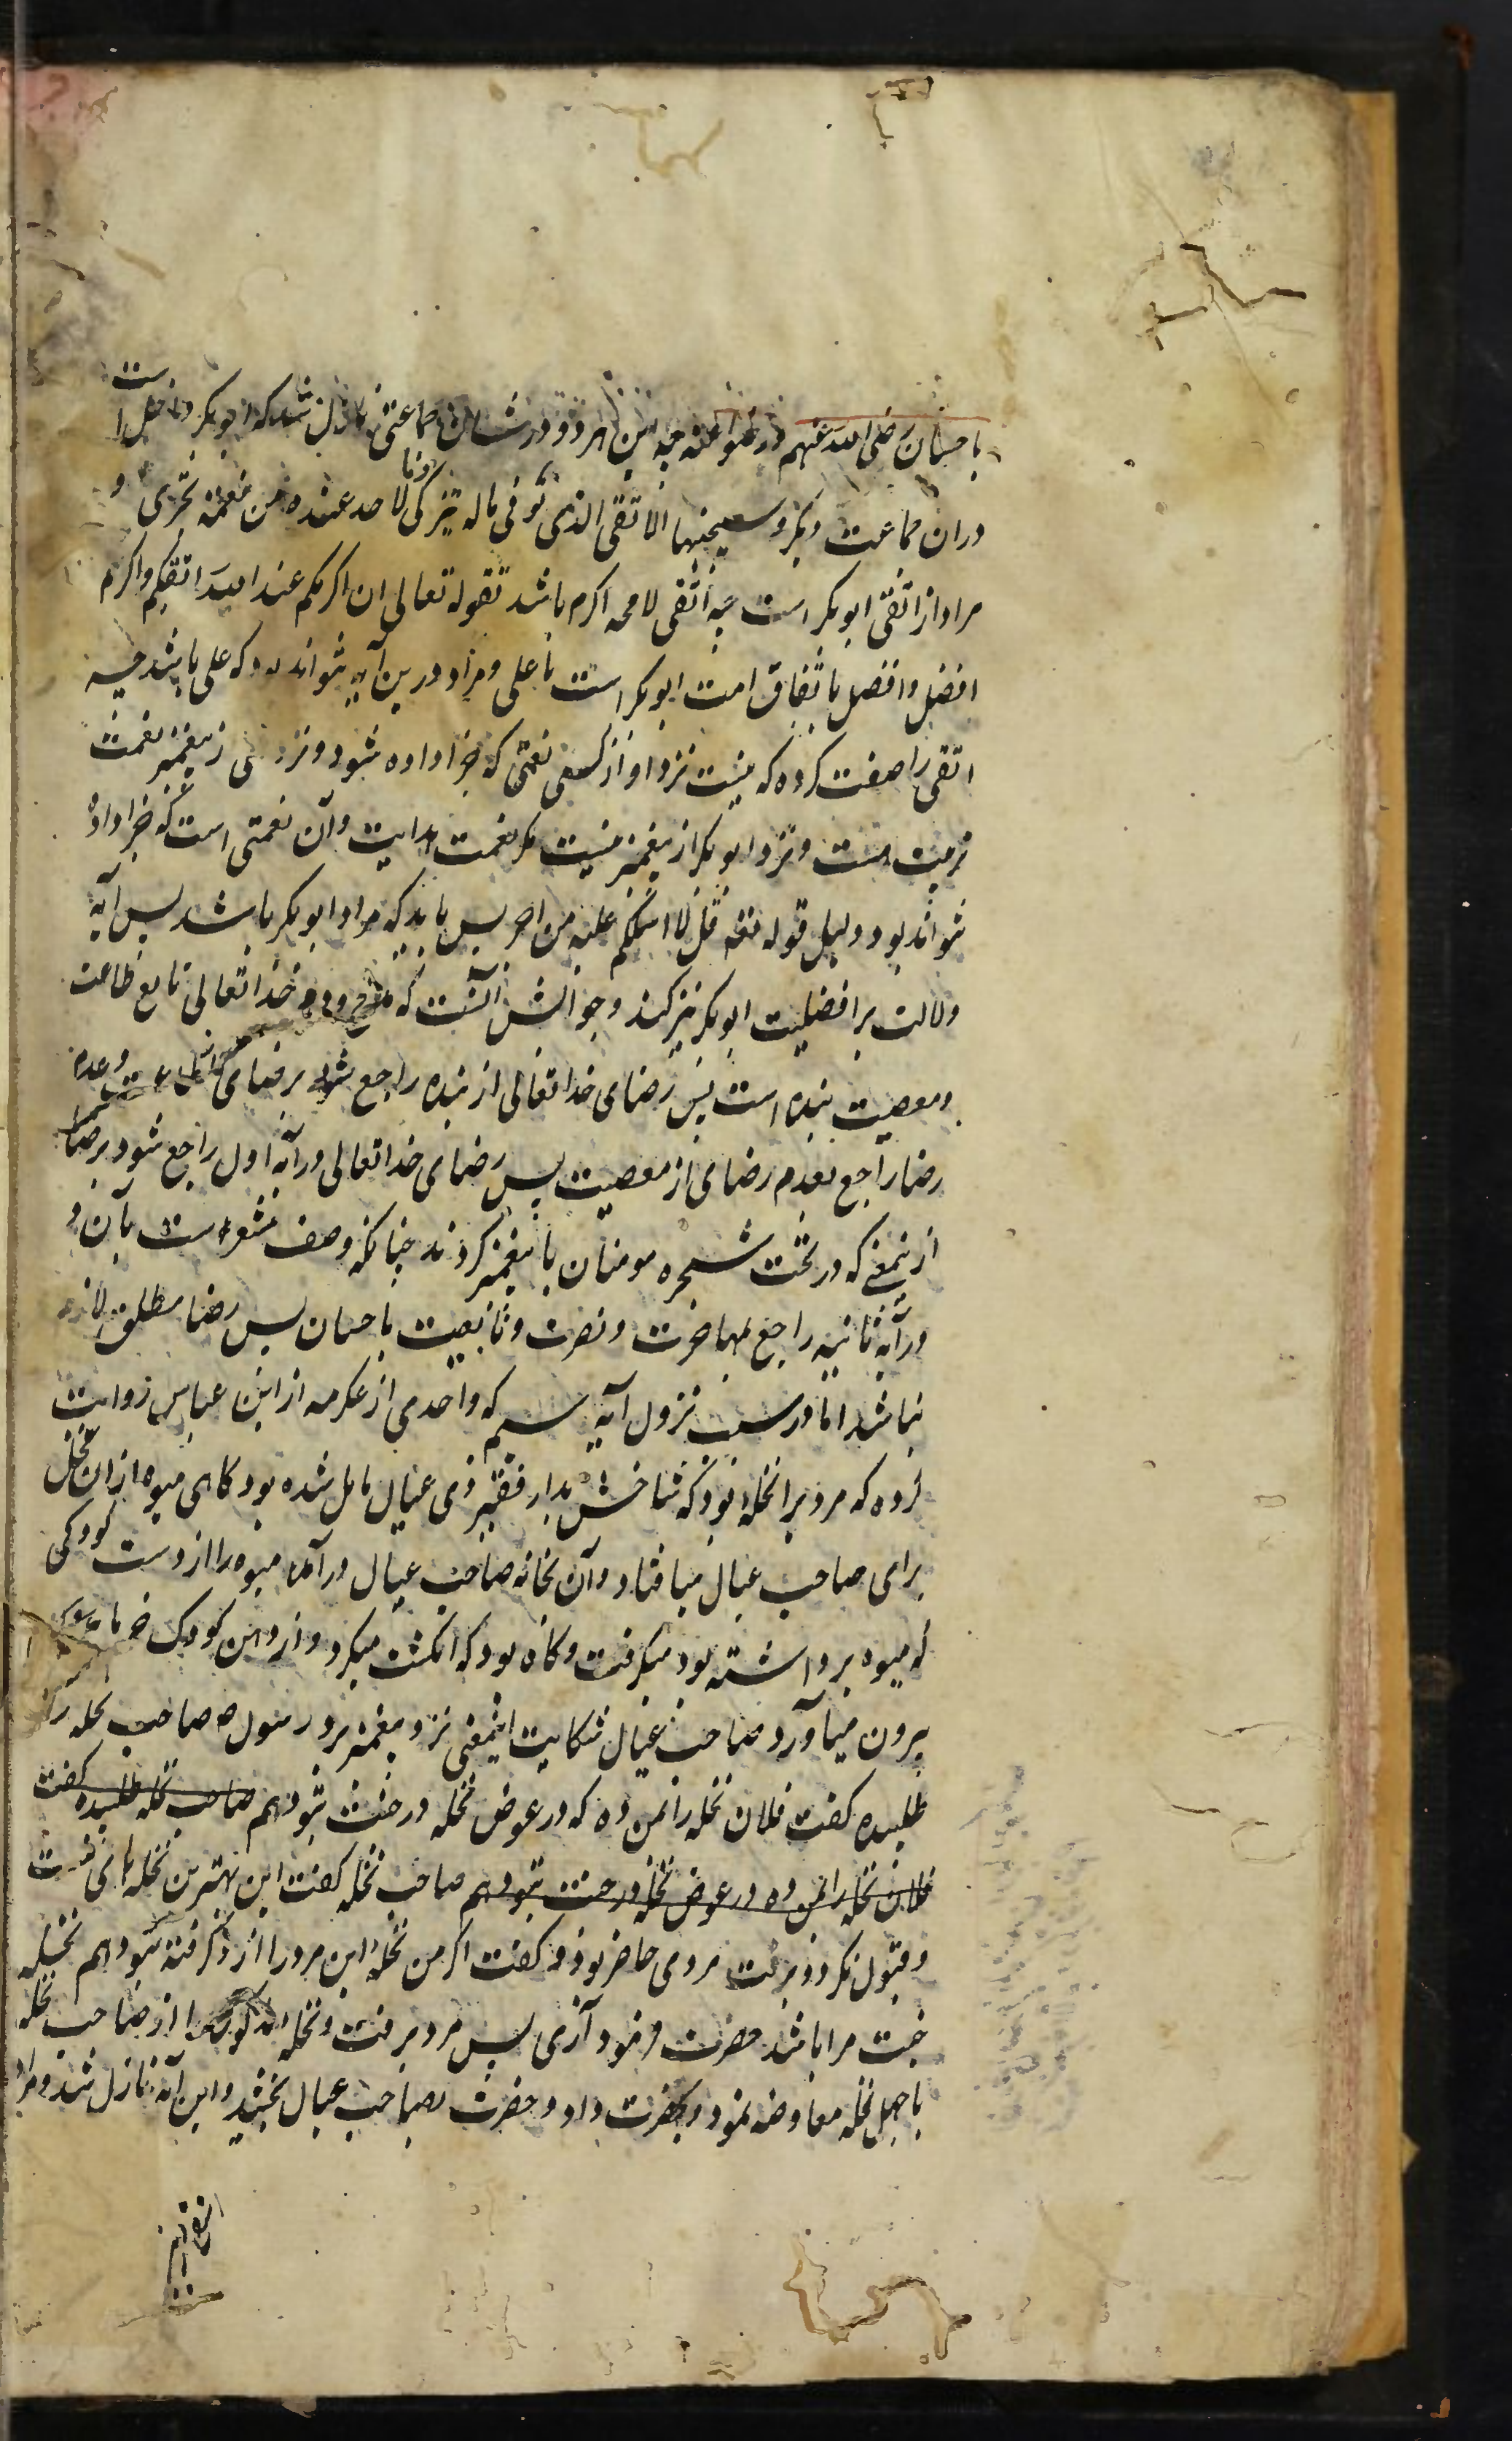 باحسان رضی الله عنهم و رضوا عنه چه این هر دو در شان جماعتی نازل شد که ابوبکر داخل است
دران جماعت و دیگر و سیجنبها الاتقی الذی یؤتی ماله یتزکی و ما لاحد عنده من نعمة تجزی و
مراد از اتقی ابوبکر است چه اتقی لامحه اکرم باشد لقوله تعالی ان اکرمکم عند الله اتقیکم و اکرم
افضل و افضل باتفاق امت ابوبکر است یا علی و مراد درین آیه نتواند بود که علی باشد چه
اتقی را صفت کرده که نیست نزد او از کسی نعمتی که جزا داده شود و نزد علی از پیغمبر نعمت
تربیت هست و نزد ابوبکر از پیغمبر نیست مکر نعمت هدایت و آن نعمتی است که جزا داده
نتواند بود دلیل قوله تعه قل لا اسئلکم علیه من اجر پس باید که مراد ابوبکر باشد پس آیه
دلالت بر افضلیت ابوبکر نیز کند و جوابش آنست که خدا تعالی تابع طاعت
و معصیت بنده است پس رضای خدا تعالی از بنده راجع شود برضای از طاعت و عدم
رضا راجع بعدم رضای از معصیت پس رضای خدا تعالی در آیه اول راجع شود برضا
از بیعتی که در تحت شجره مومنان با پیغمبر کردند چنانکه وصف مشعر است بآن و
در آیه ثانیه راجع بمهاجرت و نصرت و تابعیت باحسان پس رضا مطلق لازم
نباشد اما در سبب نزول آیه سیم که واحدی از عکرمه از ابن عباس روایت
کرده که مردیرا نخله بود که شاخش بدار فقیر ذی عیال مایل شده بود کاهی میوه ازان نخل
برای صاحب عیال میافتاد و آن بخانه صاحب عیال درآمد میوه را از دست کودکی
که میوه برداشته بود میکرفت و کاه بود که انکشت میکرد و از دهن کودک خرما
بیرون میآورد صاحب عیال شکایت اینمعنی نزد پیغمبر برد رسول ص صاحب نخله را
طلبیده کفت فلان نخله را بمن ده که در عوض نخله در جنت بتو دهم صاحب نخله طلبیده کفت
فلان نخله را بمن ده در عوض نخله در جنت بتو دهم صاحب نخله کفت این بهترین نخله های منست
و قبول نکرد و برفت مردی حاضر بود و کفت اکر من نخله این مرد را ازو کرفته بتو دهم نخله
جنت مرا باشد حضرت فرمود آری پس مرد برفت و نخله مذکور را از صاحب نخله
باچهل نخله معاوضه نمود و بحضرت داد و حضرت بصاحب عیال بخشید و این آیه نازل شد و مراد